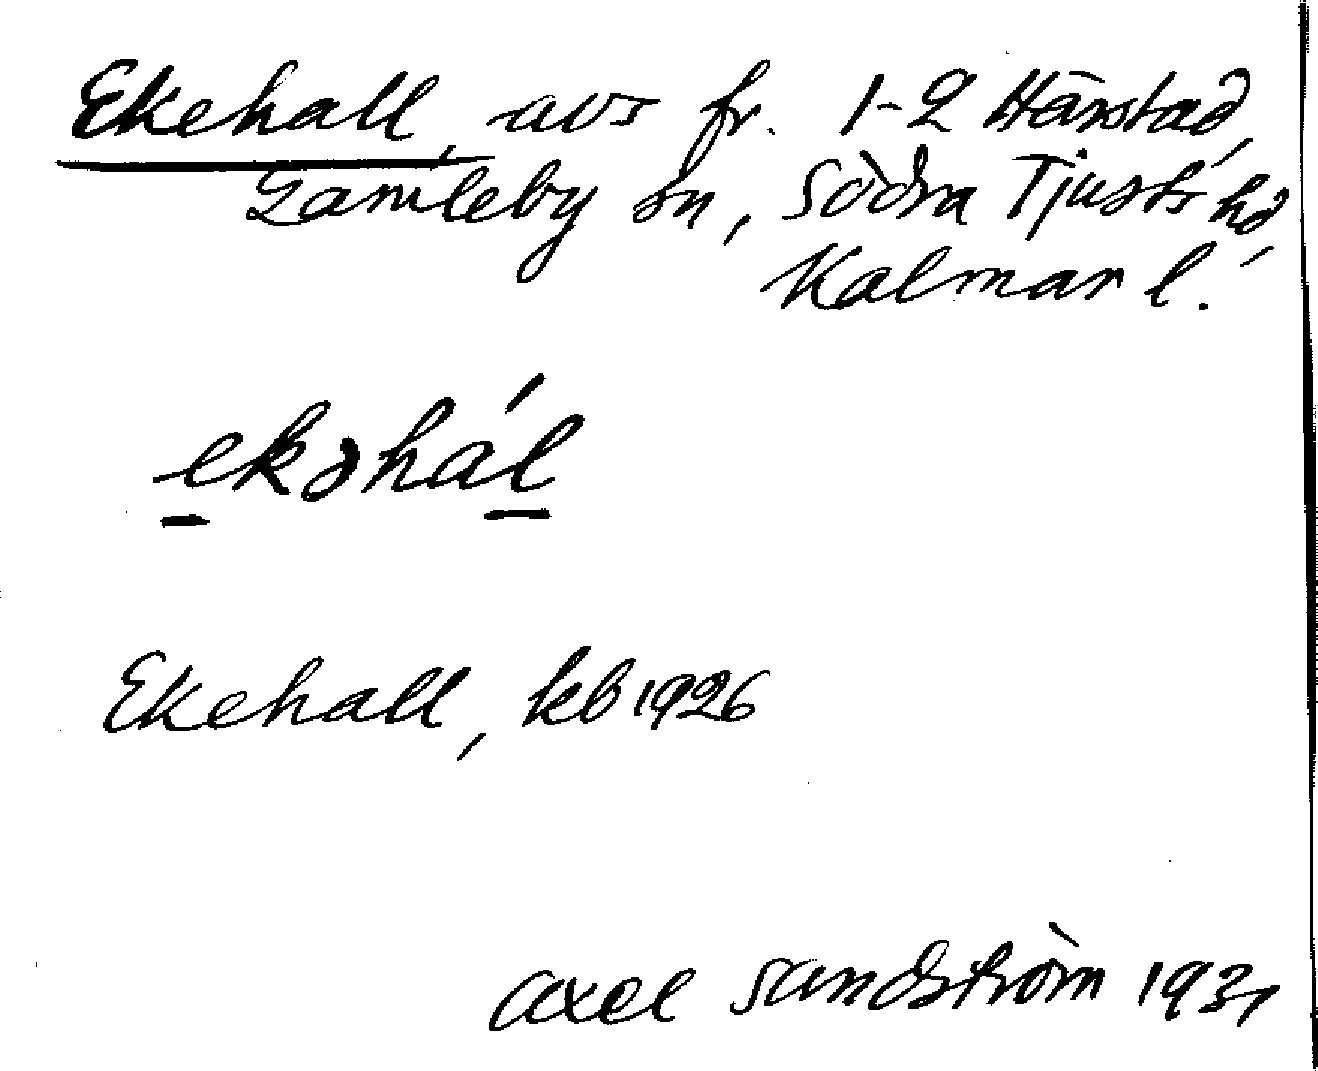 Ekehall, avs fr. 1-2 Hanstad,
Gamleby sn, Södra Tjusts hd,
Kalmar l.
ekəhál
Ekehall, kb 1926
Axel Sandström 1931